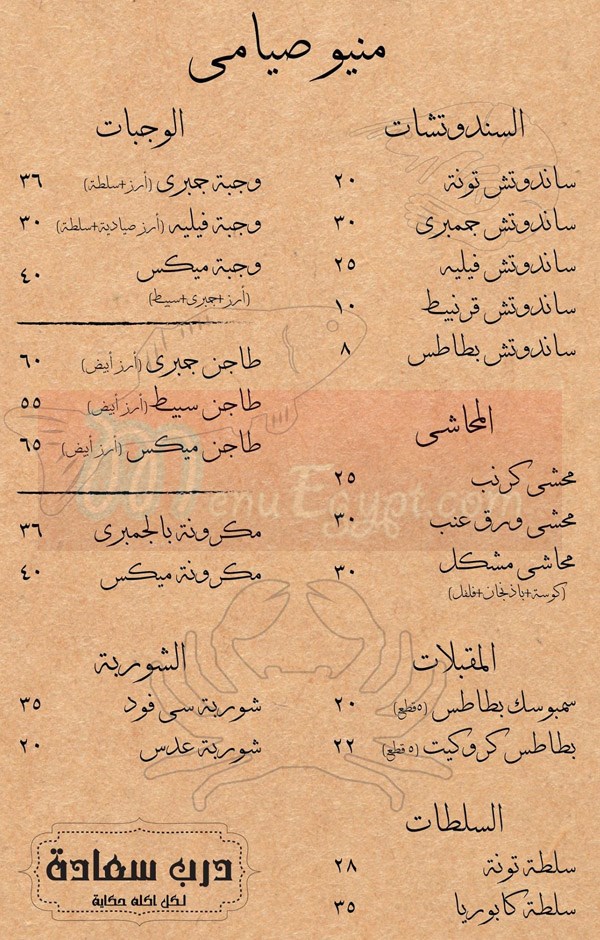 منيو صيامى
السندوتشات
ساندوتش تونة ٢٠
ساندوتش جمبرى ٣٠
ساندوتش فيليه ٢٥
ساندوتش قرنبيط ١٠
ساندوتش بطاطس ٨
المحاشى
محشى كرنب ٢٥
محشى ورق عنب ٣٠
محاشى مشكل ٣٠
(كوسة+باذنجان+فلفل)
المقبلات
سمبوسك بطاطس (٥ قطع) ٢٠
بطاطس كروكيت (٥ قطع) ٢٢
السلطات
سلطة تونة ٢٨
سلطة كابوريا ٣٥
الوجبات
وجبة جمبرى (أرز+سلطة) ٣٦
وجبة فيليه (أرز صيادية+سلطة) ٣٠
وجبة ميكس ٤٠
(أرز+جمبرى+سبيط)
طاجن جمبرى (أرز أبيض) ٦٠
طاجن سبيط (أرز أبيض) ٥٥
طاجن ميكس (أرز أبيض) ٦٥
مكرونة بالجمبرى ٣٦
مكرونة ميكس ٤٠
الشوربة
شوربة سى فود ٣٥
شوربة عدس ٢٠
درب سعادة
لكل اكله حكاية
MenuEgypt.com